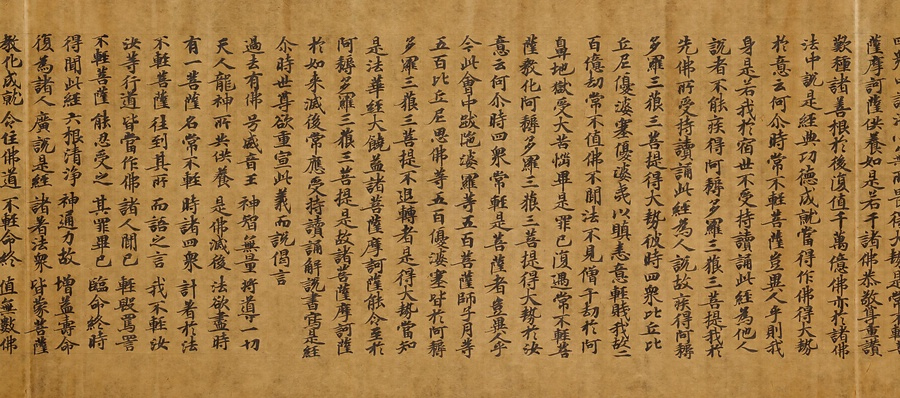 薩摩訶薩供養如是若干諸佛恭敬尊重讚
歎種諸善根於後復值千萬億佛亦於諸佛
法中說是經典功德成就當得作佛得大勢
於意云何尒時常不輕菩薩豈異人乎則我
身是若我於宿世不受持讀誦此經為他人
說者不能疾得阿耨多羅三藐三菩提我於
先佛所受持讀誦此經為人說故疾得阿耨
多羅三藐三菩提得大勢彼時四衆比丘比
丘尼優婆塞優婆夷以瞋恚意輕賤我故二
百億劫常不值佛不聞法不見僧千劫於阿
鼻地獄受大苦惱畢是罪已復遇常不輕菩
薩教化阿耨多羅三藐三菩提得大勢於汝
意云何尒時四衆常輕是菩薩者豈異人乎
今此會中跋陁婆羅等五百菩薩師子月等
五百比丘尼思佛等五百優婆塞皆於阿耨
多羅三藐三菩提不退轉者是得大勢當知
是法華經大饒益諸菩薩摩訶薩能令至於
阿耨多羅三藐三菩提是故諸菩薩摩訶薩
於如來滅後常應受持讀誦解說書寫是經
尒時世尊欲重宣此義而說偈言
過去有佛 号威音王 神智無量 將導一切
天人龍神 所共供養 是佛滅後 法欲盡時
有一菩薩 名常不輕 時諸四衆 計著於法
不輕菩薩 往到其所 而語之言 我不輕汝
汝等行道 皆當作佛 諸人聞已 輕毀罵詈
不輕菩薩 能忍受之 其罪畢已 臨命終時
得聞此經 六根清淨 神通力故 增益壽命
復為諸人 廣說是經 諸著法衆 皆蒙菩薩
教化成就 令住佛道 不輕命終 值無數佛